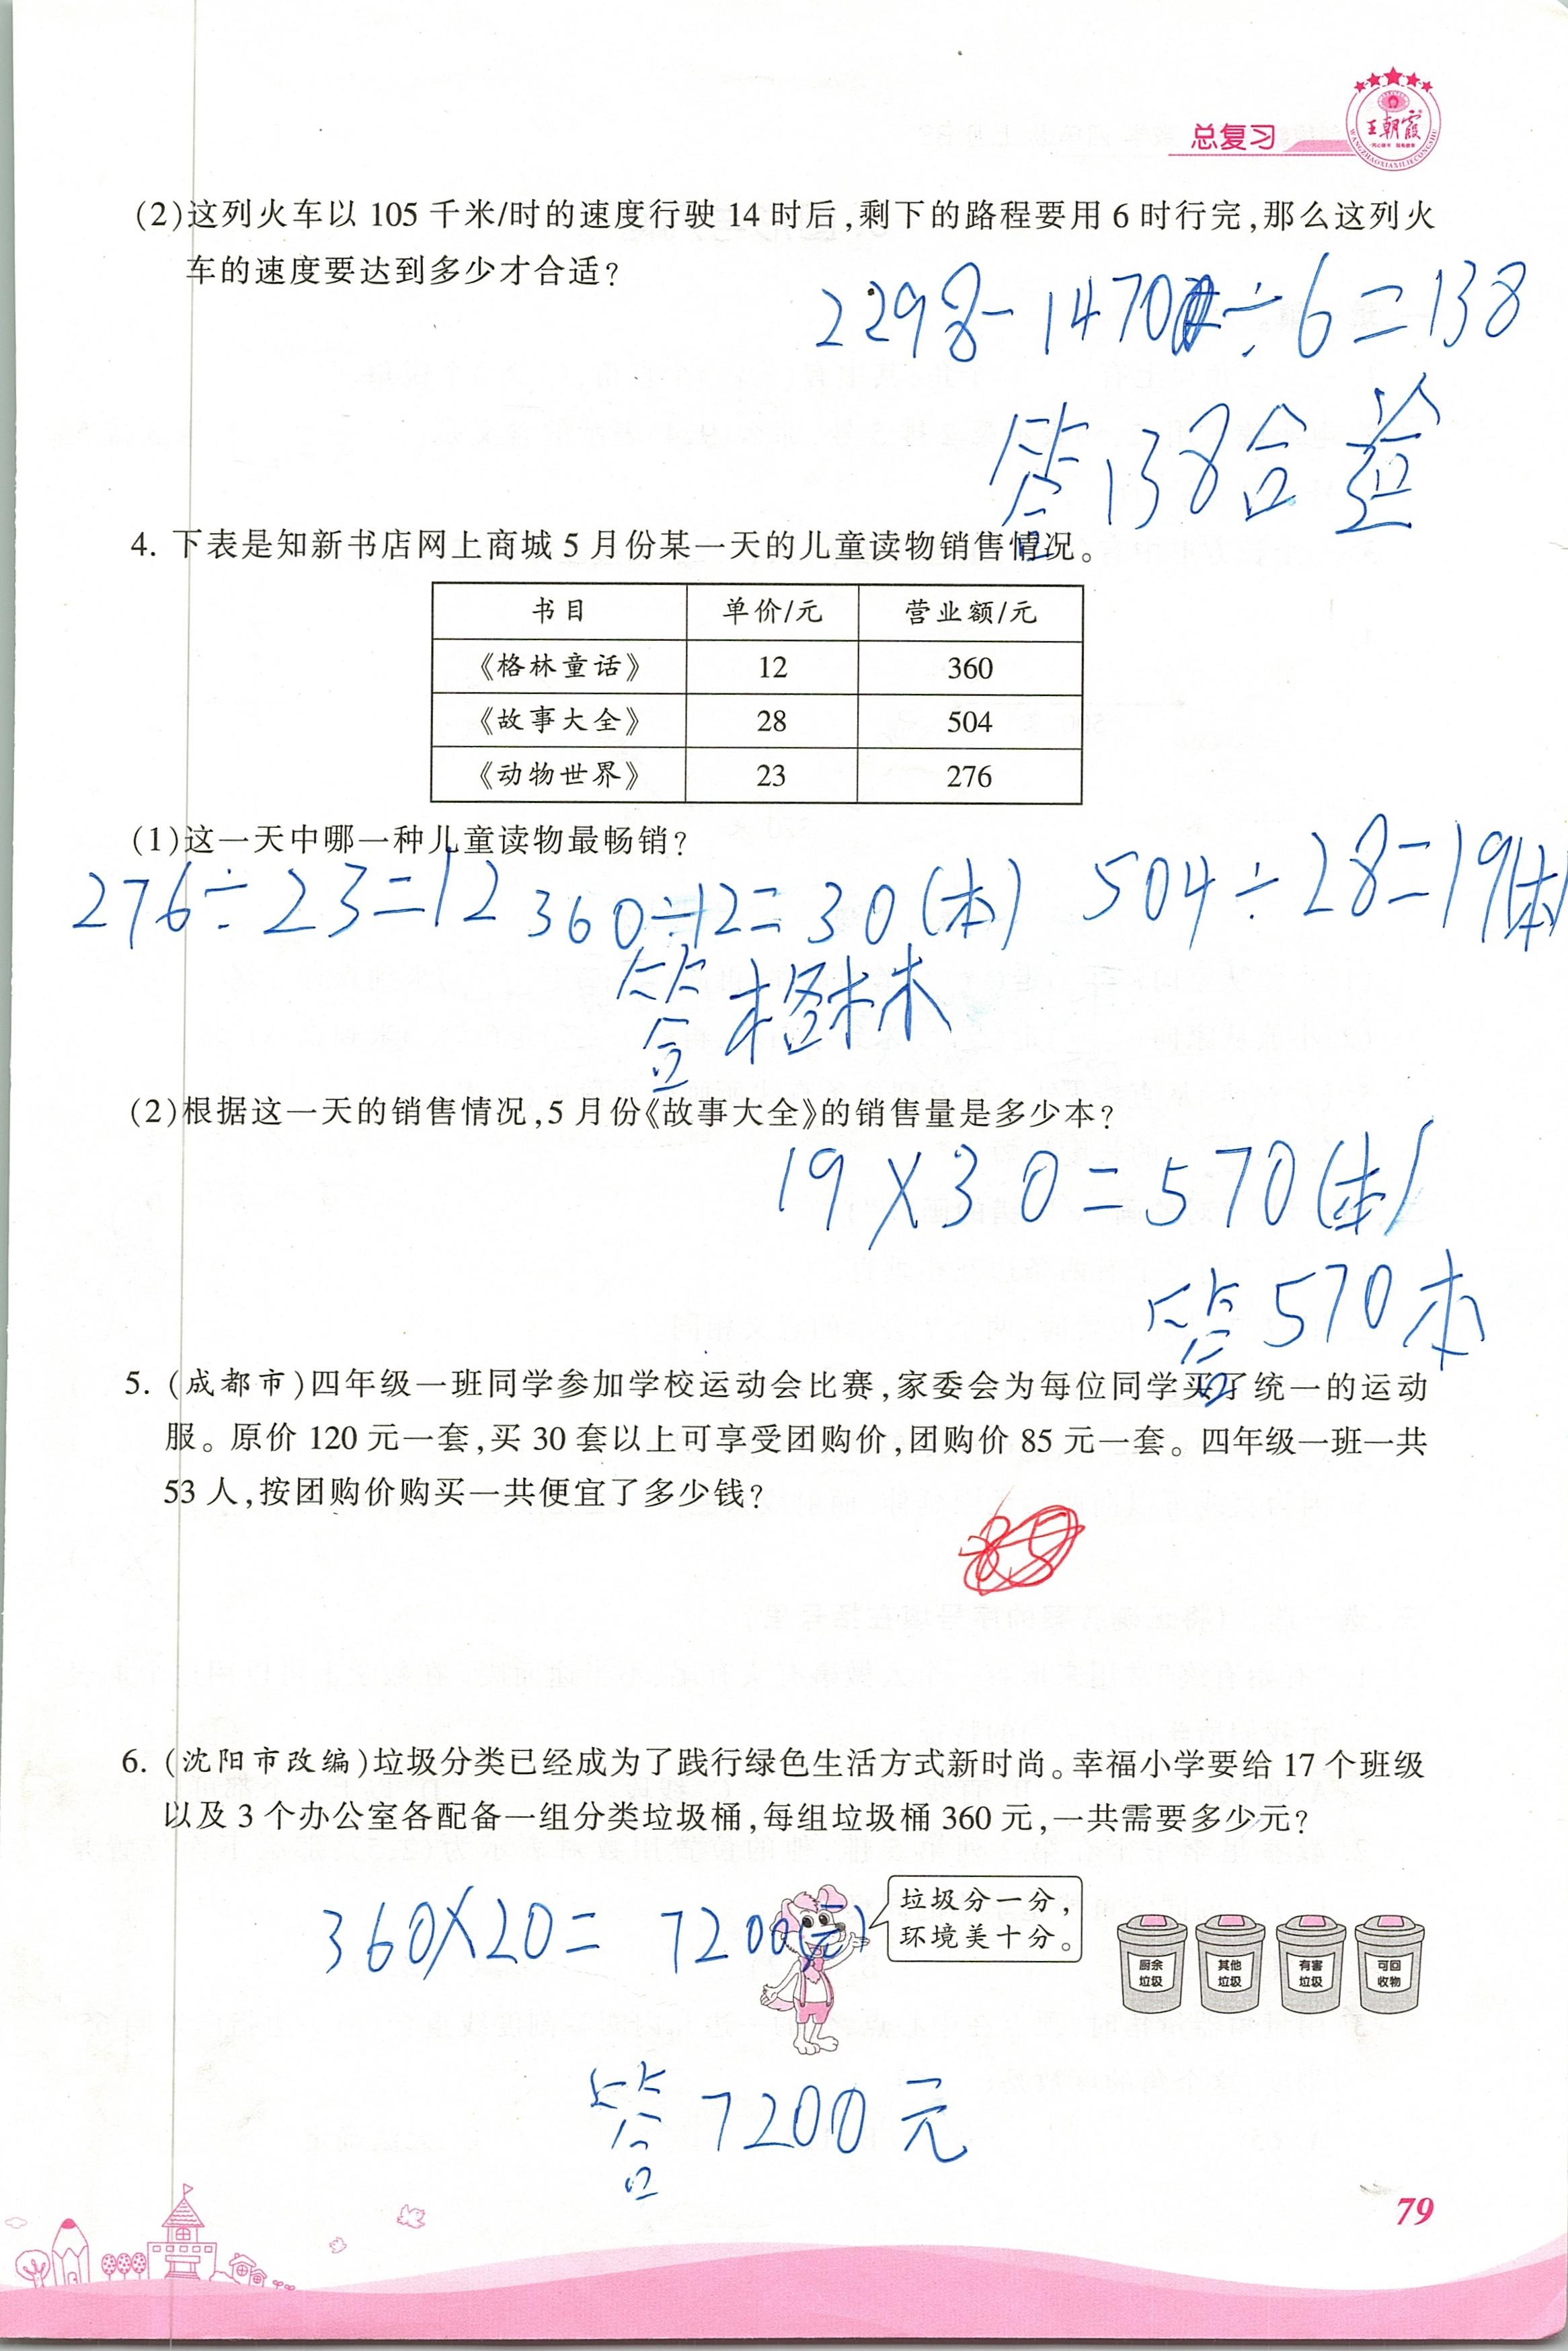 总复习
王朝霞
(2)这列火车以 105 千米/时的速度行驶 14 时后,剩下的路程要用 6 时行完,那么这列火
车的速度要达到多少才合适?
2298-1470÷6=138
答138合适
4. 下表是知新书店网上商城 5 月份某一天的儿童读物销售情况。
书目 单价/元 营业额/元
《格林童话》 12 360
《故事大全》 28 504
《动物世界》 23 276
(1)这一天中哪一种儿童读物最畅销?
276÷23=12 360÷12=30(本) 504÷28=19(本)
答格林
(2)根据这一天的销售情况,5 月份《故事大全》的销售量是多少本?
19×30=570(本)
答570本
5. (成都市)四年级一班同学参加学校运动会比赛,家委会为每位同学买了统一的运动
服。原价 120 元一套,买 30 套以上可享受团购价,团购价 85 元一套。四年级一班一共
53 人,按团购价购买一共便宜了多少钱?
6. (沈阳市改编)垃圾分类已经成为了践行绿色生活方式新时尚。幸福小学要给 17 个班级
以及 3 个办公室各配备一组分类垃圾桶,每组垃圾桶 360 元,一共需要多少元?
垃圾分一分,
环境美十分。
360×20= 7200(元)
厨余垃圾 其他垃圾 有害垃圾 可回收物
答7200元
79